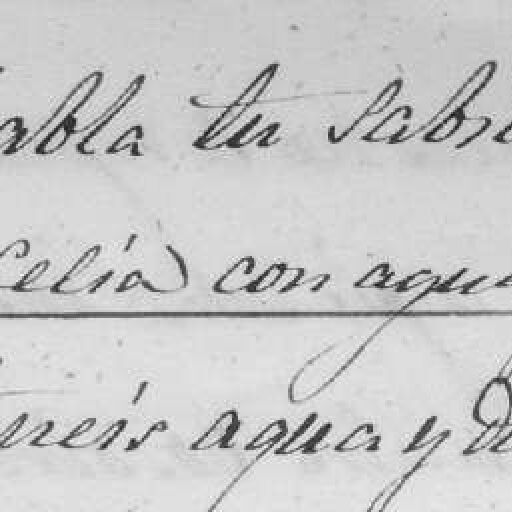 habla tu sabr
Celia) con agu
tneis agua y De